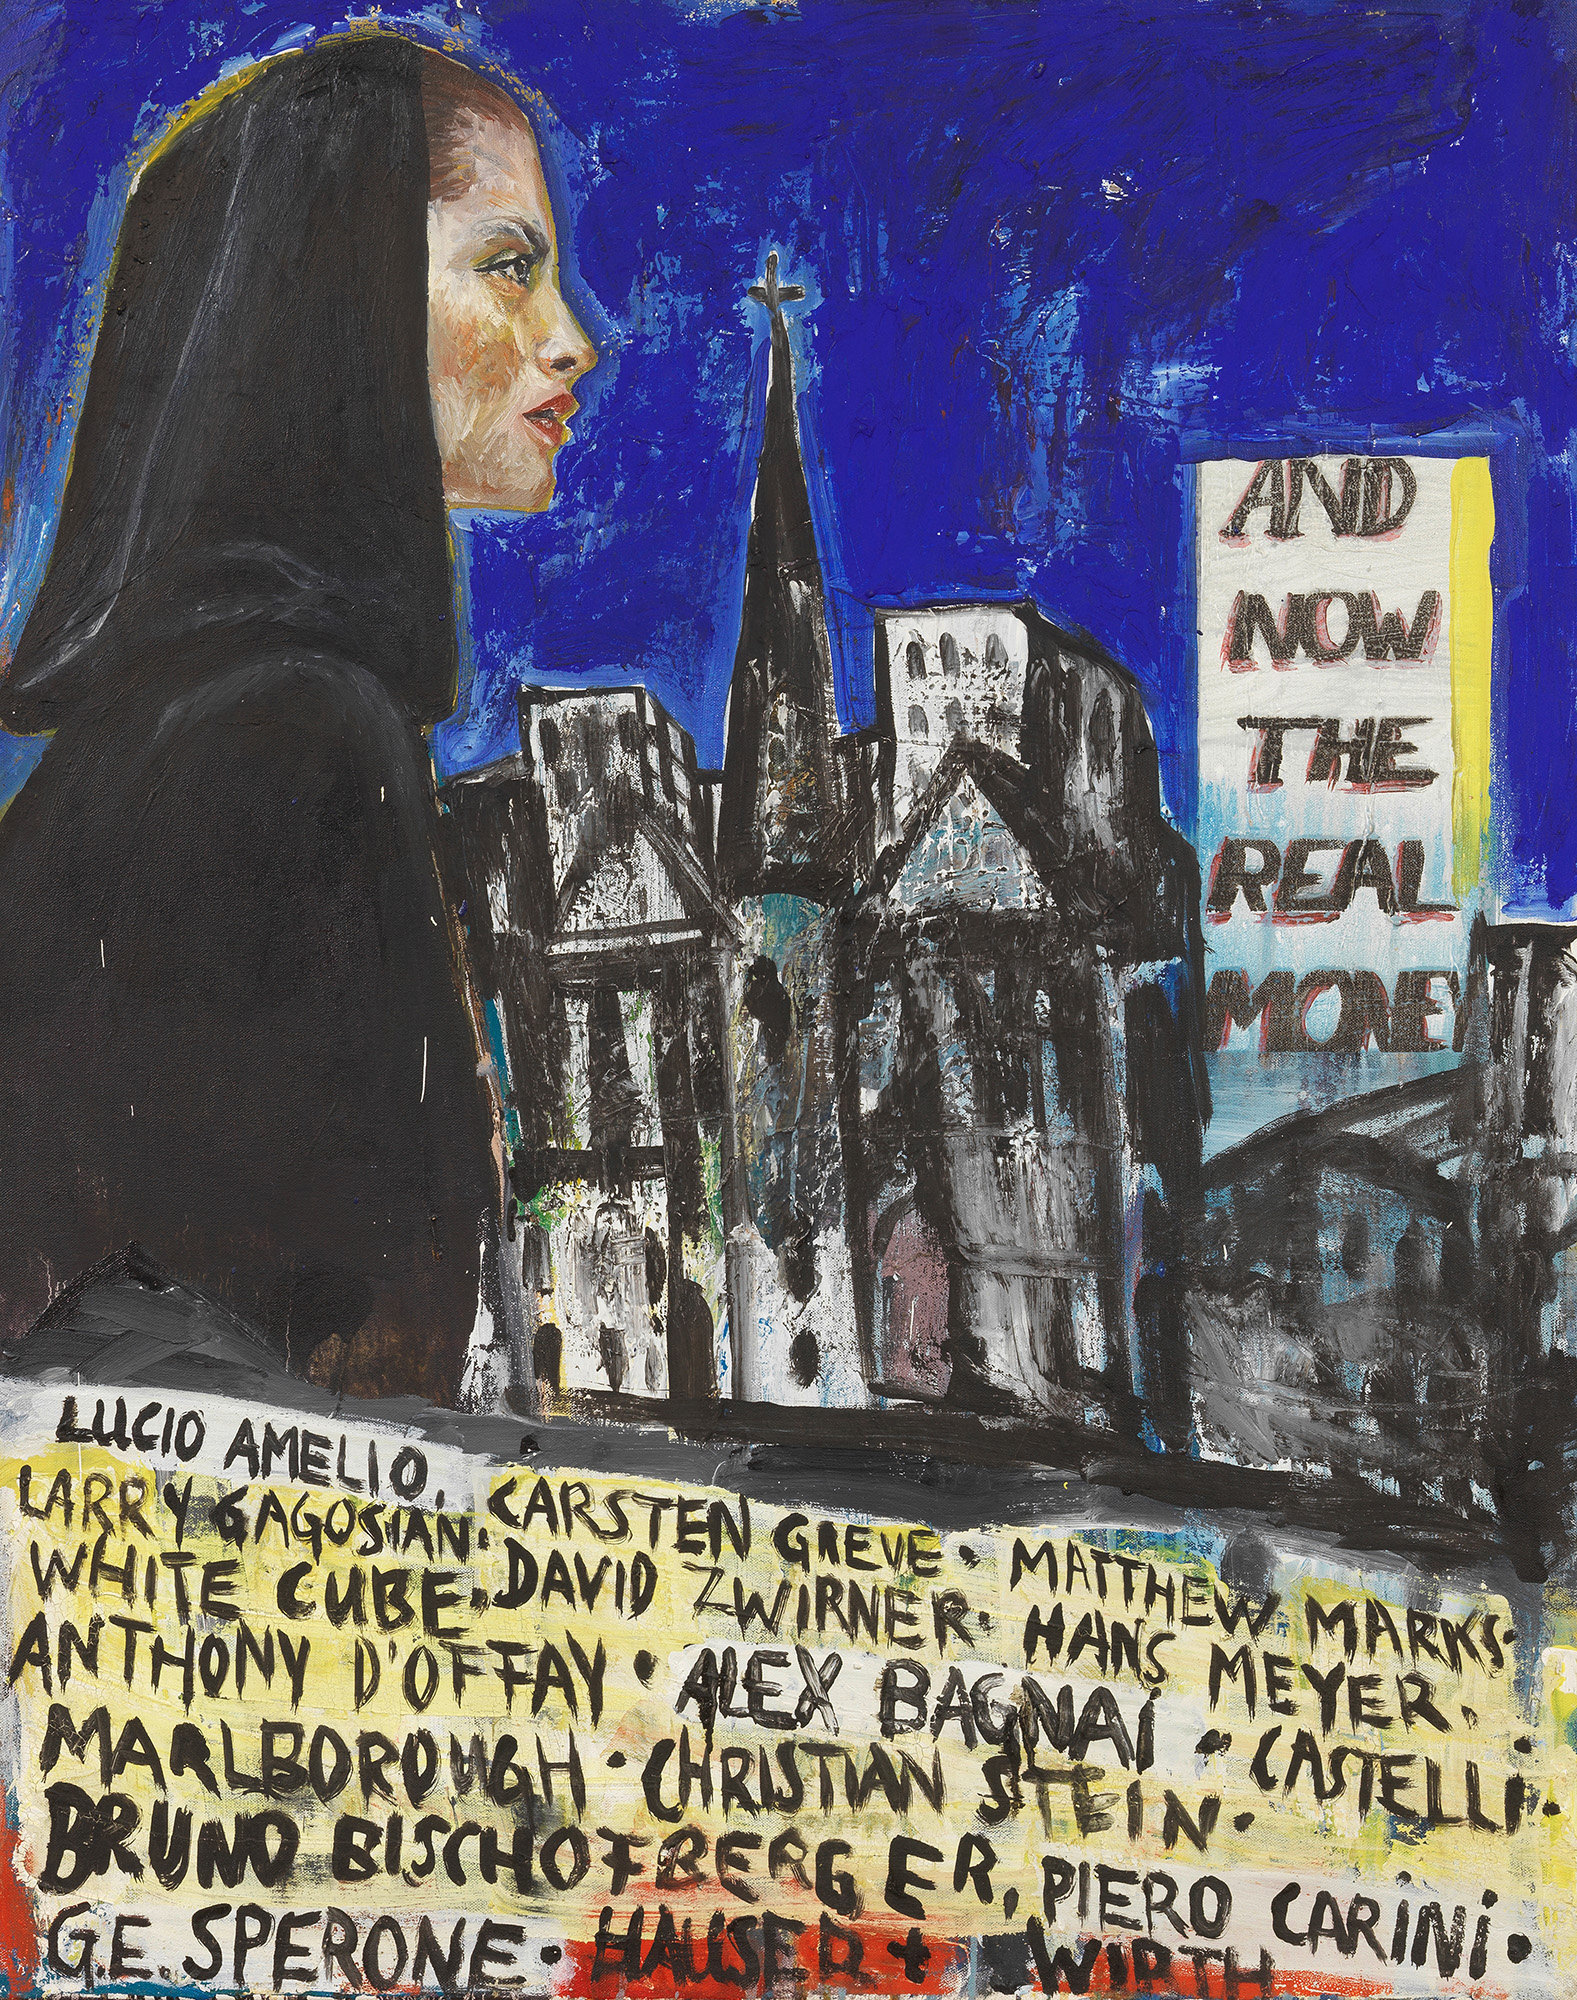 AND
NOW
THE
REAL
MONEY
LUCIO AMELIO,
LARRY GAGOSIAN. CARSTEN GREVE • MATTHEW MARKS.
WHITE CUBE. DAVID ZWIRNER. HANS MEYER.
ANTHONY D'OFFAY • ALEX BAGNAi • CASTELLi.
MARLBOROUGH • CHRISTIAN STEIN.
BRUNO BISCHOFBERGER, PIERO CARiNi.
G.E. SPERONE • HAUSER + WIRTH